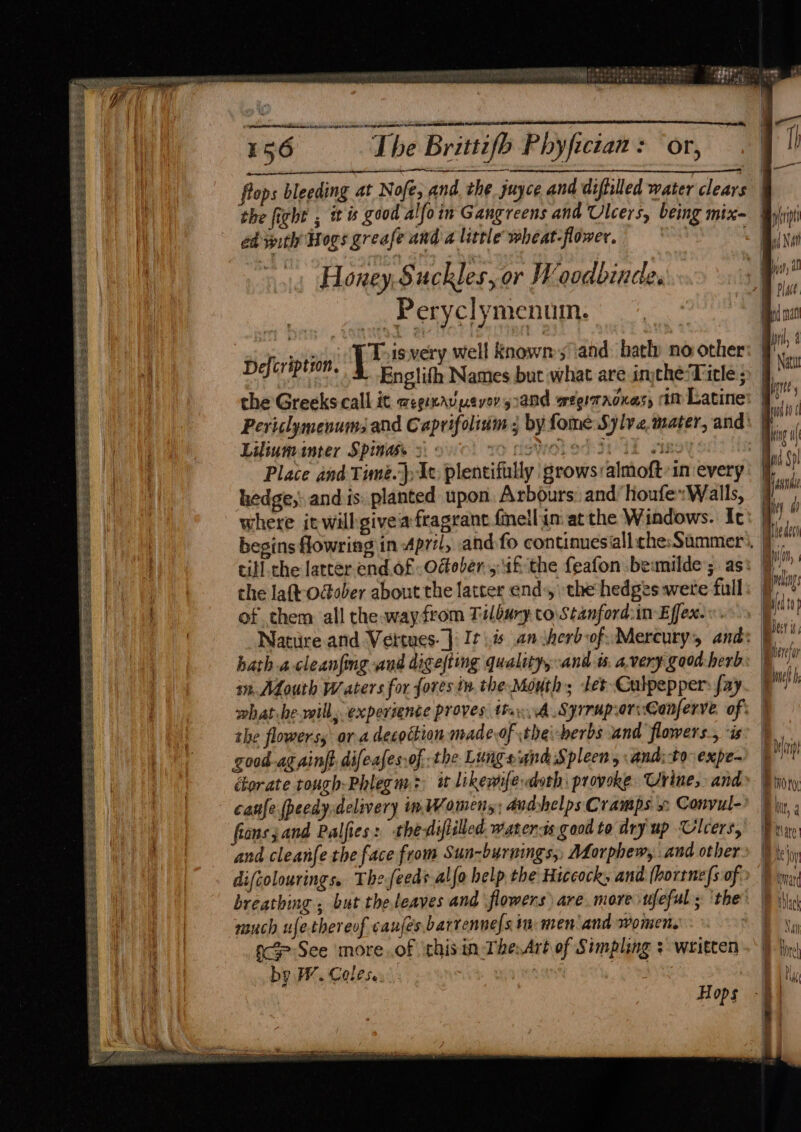 156 The Brittiſh Phyſician : or,
ſtops bleeding at Noſe, and the juyce and diſtilled water clears
the ſight ; it is good alſo in Gangreens and Ulcers, being mix-
ed with Hogs greaſe and a little wheat-flower.
Honey Suckles, or Woodbinde.
Peryclymenum.
Deſcription. IT is very well known, and hath no other
Engliſh Names but what are in the Title ;
the Greeks call it and in Latine
Periclymenum, and Caprifolium ; by ſome Sylvæ mater, and
Lilium inter Spinas.
Place and Time.] It plentifully grows almoſt in every
hedge, and is planted upon Arbours and houſe-Walls,
where it will give a fragrant ſmell in at the Windows. It
begins flowring in April, and ſo continues all the Summer,
till the latter end of October, if the ſeaſon be milde ; as
the laſt October about the latter end, the hedges were full
of them all the way from Tilbury to Stanford in Eſſex.
Nature and Vertues.] It is an herb of Mercury, and
hath a cleanſing and digeſting quality, and is a very good herb
in Mouth Waters for ſores in the Mouth ; let Culpepper ſay
what he will, experience proves it. A Syrrup or Conſerve of
the flowers, or a decoction made of the herbs and flowers, is
good againſt diſeaſes of the Lungs and Spleen, and to expe-
ctorate tough Phlegm : it likewiſe doth provoke Urine, and
cauſe ſpeedy delivery in Women, and helps Cramps, Convul-
ſions, and Palſies : the diſtilled water is good to dry up Ulcers,
and cleanſe the face from Sun-burnings, Morphew, and other
diſcolourings. The ſeeds alſo help the Hiccock, and ſhortneſs of
breathing ; but the leaves and flowers are more uſeful ; the
much uſe thereof cauſes barrenneſs in men and women.
☞ See more of this in The Art of Simpling : written
by W. Coles.
Hops